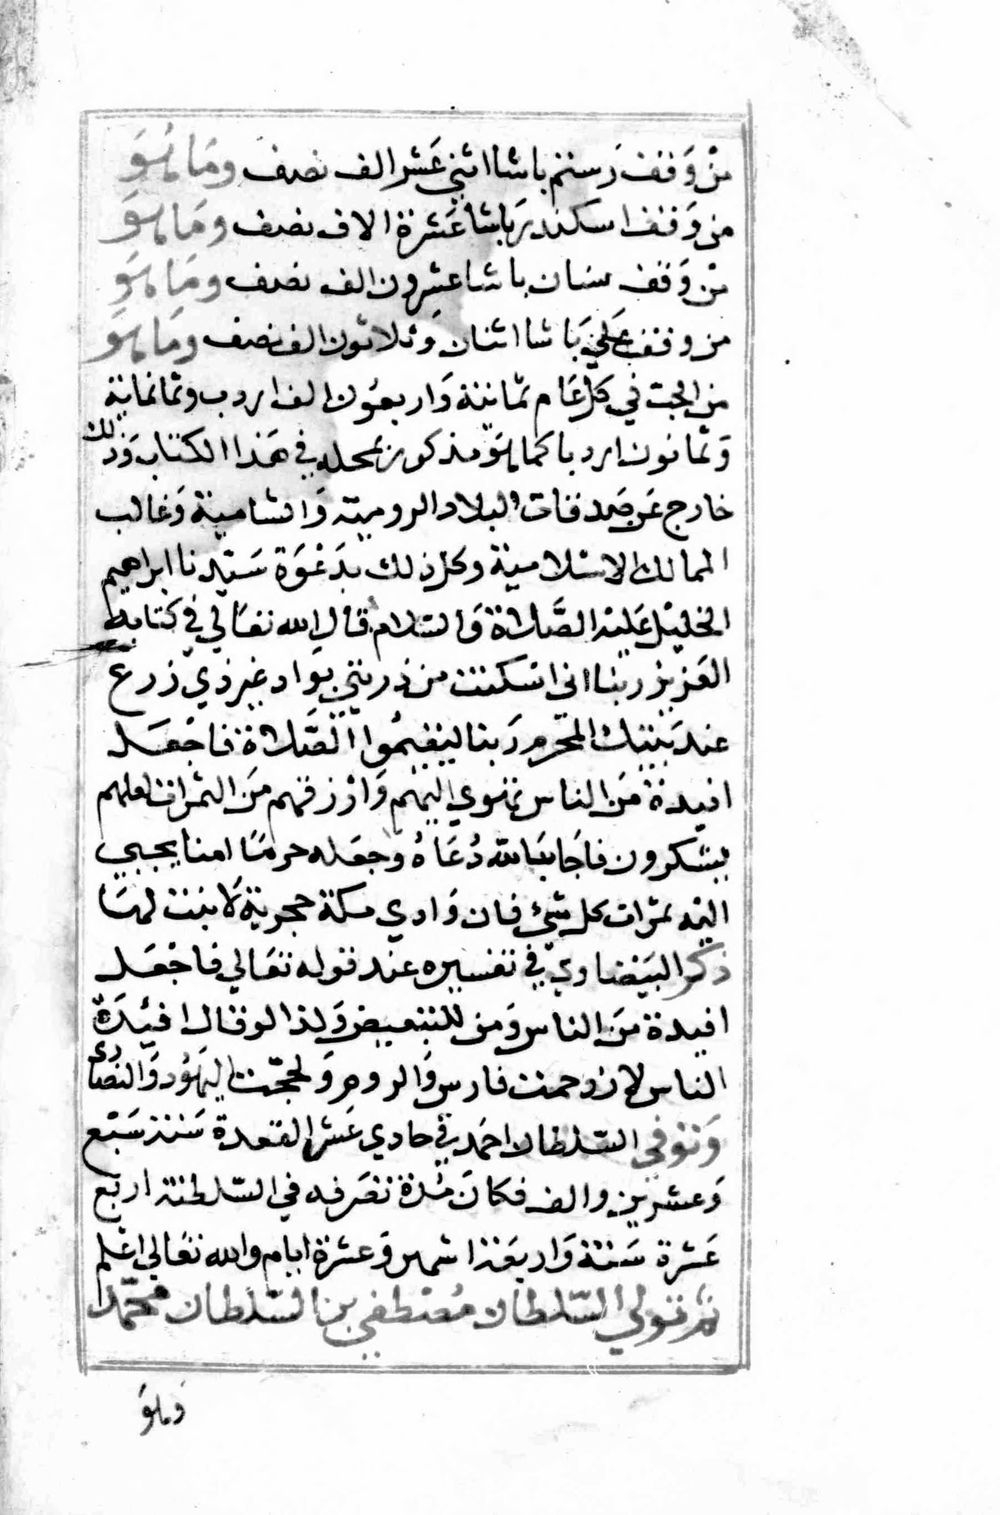 من وَقف رستم باشا اثني عَشر الف نصف ومَا هُوَ
من وَقف اسكندر باشا عَشرة الاف نصف ومَا هوَ
من وَقف سنان باشا عشرون الف نصف ومَا هوَ
من وقف علي بَاشا اثنان وَثلاثون الف نصف ومَا هوَ
من الحب في كل عَام ثمانية وَاربعون الف اردب وثمانماية
وَثمانون اردبا كما هوَ مذكور بمحله في هَذا الكتاب وَذلك
خارج عَن صَدقات البلاد الرومية وَالشامية وَغالب
الممالك الاسلامية وكل ذلك بدَعْوَة سَيّدنا ابراهيم
الخليل عَليْه الصَّلاة وَالسّلام قال الله تعَالي في كتابه
العَزيز ربنا اني اسْكنت من ذريتي بواد غير ذي زرع
عند بَيْتك المحّرم رَبنا ليقيمُوا الصَّلاة فاجْعَل
افيدة مَن الناس تهوي اليْهم وَارْزقهم مَن الثمرات لعلهم
يشكرون فاجابَ الله دُعَاهُ وجعَله حرمًا امنا يجبي
اليْه ثمرات كل شئ فان وَادي مكة حجرية لَا نبت لهَا
ذكر البَيْضاوي في تفسيره عند قوله تعَالي فاجْعَل
افيدة مَن الناس وَمن للتبعيض وَلذا لو قال افئِدَة
الناس لازدحمت فارس وَالروم وَلحجّت اليَهُود وَالنصَاري
وَتوفي السّلطان احمَد في حادي عَشر القعدة سَنة سَبْع
وَعشرين والف فكانَ مُدة تصَرفه في السّلطنة اربَع
عَشرة سَنة وَاربعَة اشهر وَعشرة ايام والله تعَالي اعْلم
ثم تولي السّلطان مُصْطفي بن السّلطان محمّد
وهوَ